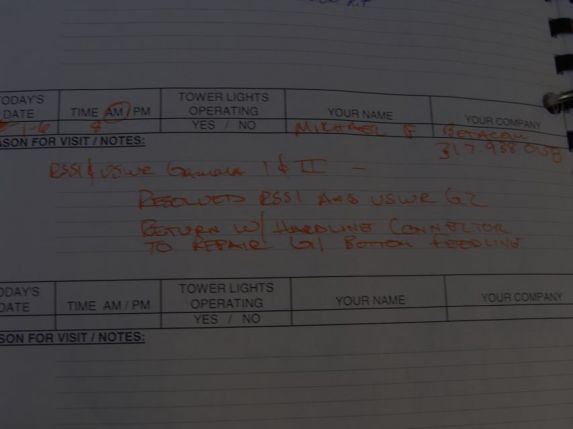 TODAY'S DATE TIME AM / PM TOWER LIGHTS OPERATING YOUR NAME YOUR COMPANY
1-6 8 YES / NO MICHAEL BETACOM
REASON FOR VISIT / NOTES:
RSSI & VSWR GAMMA I & II -
RESOLVED RSSI AND VSWR G2
RETURN W/ HARDLINE CONNECTOR
TO REPAIR G1 BOTTOM FEEDLINE
ODAY'S DATE TIME AM / PM TOWER LIGHTS OPERATING YOUR NAME YOUR COMPANY
YES / NO
SON FOR VISIT / NOTES: